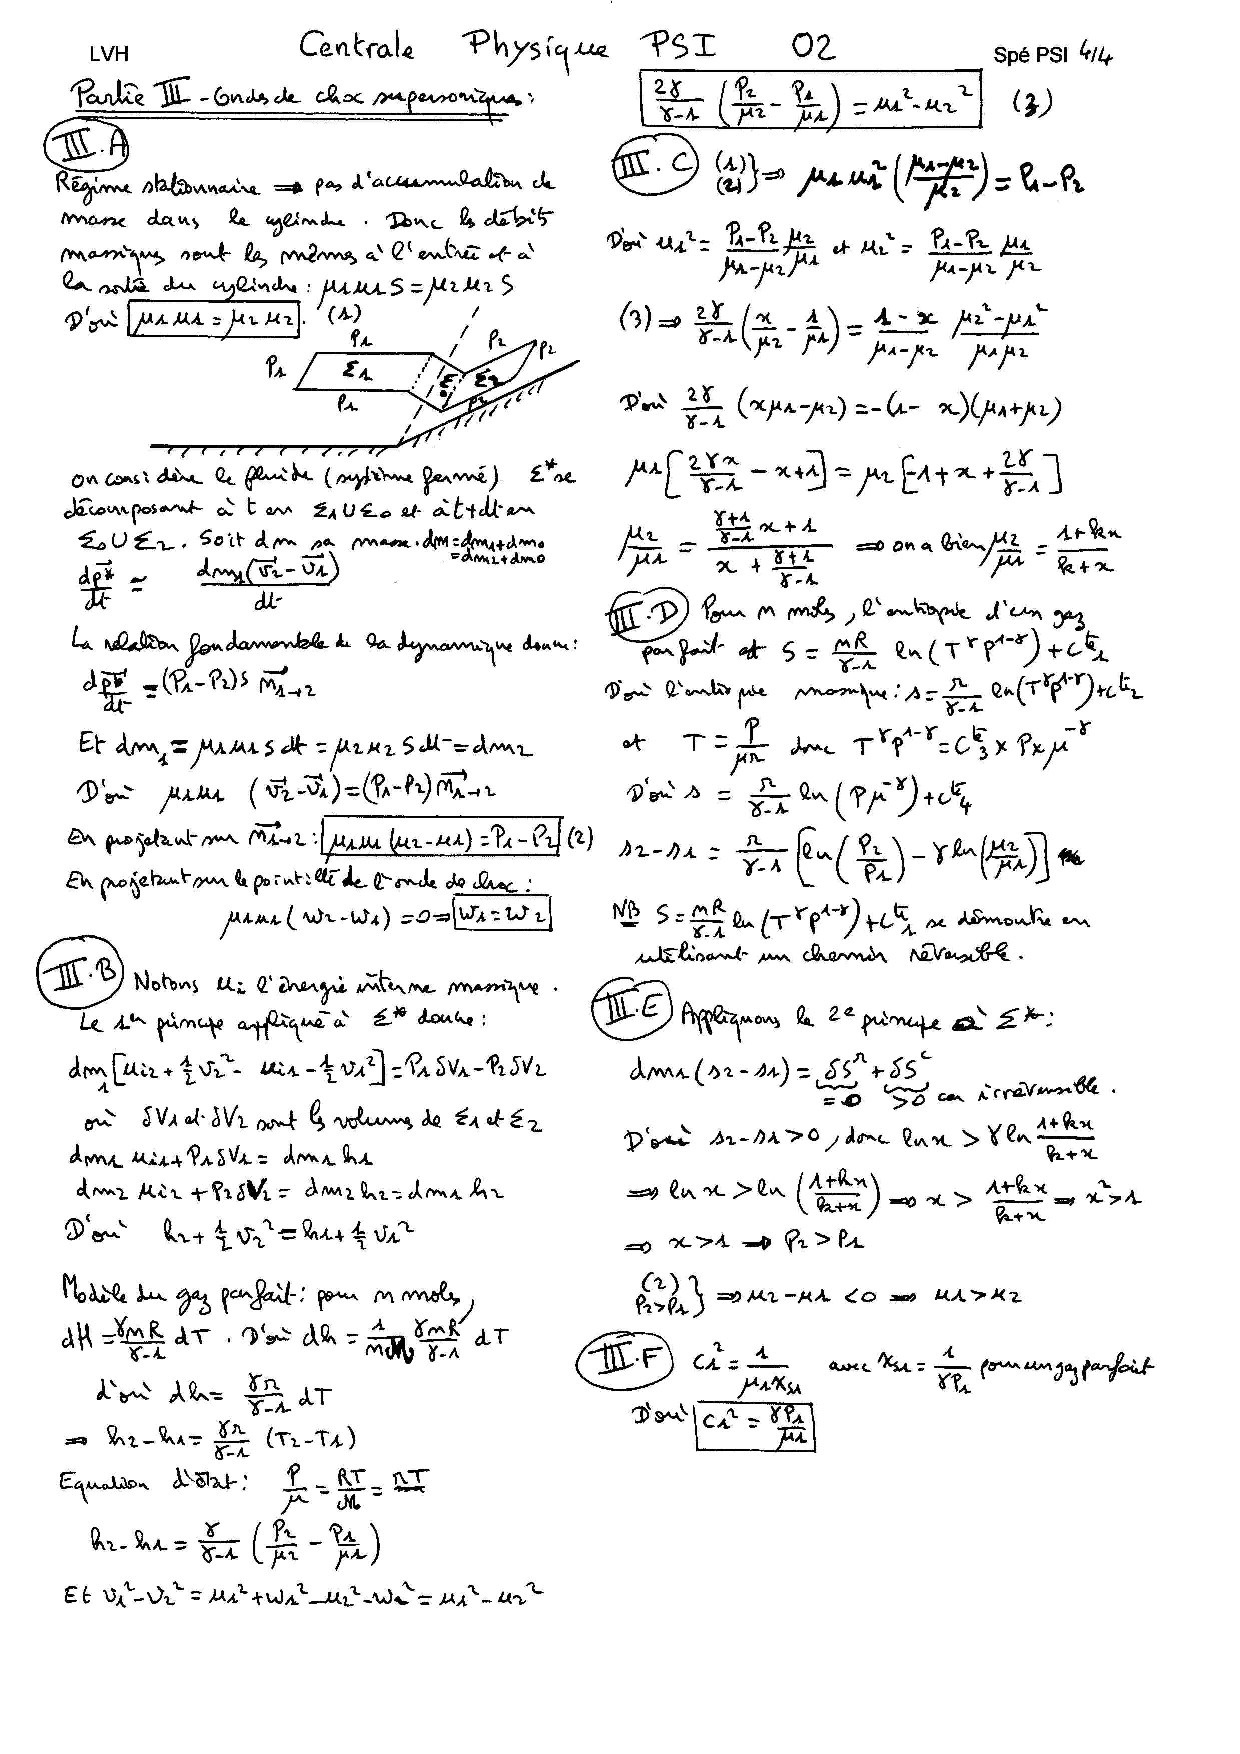 LVH
Centrale Physique PSI 02
Spé PSI 4/4
Partie III - Ondes de choc supersoniques :
III.A
Régime stationnaire ⇒ pas d'accumulation de
masse dans le cylindre. Donc les débits
massiques sont les mêmes à l'entrée et à
la sortie du cylindre : μ1u1 S = μ2u2 S
D'où μ1u1 = μ2u2. (1)
P1 P2
P1 Σ1 Σ0 Σ2 P2
P1 P2
On considère le fluide (système fermé) Σ* se
décomposant à t en Σ1∪Σ0 et à t+dt en
Σ0∪Σ2. Soit dm sa masse. dm = dm1+dm0
= dm2+dm0
dp*/dt = dm1(v2 - v1)/dt
La relation fondamentale de la dynamique donne :
dp*/dt = (P1-P2)S n1→2
Et dm1 = μ1u1 S dt = μ2u2 S dt = dm2
D'où μ1u1 (v2-v1) = (P1-P2) n1→2
En projetant sur n1→2 : μ1u1(u2-u1) = P1-P2 (2)
En projetant sur le pointillé de l'onde de choc :
μ1u1(w2-w1) = 0 ⇒ w1 = w2
III.B Notons ui l'énergie interne massique.
Le 1er principe appliqué à Σ* donne :
dm1[ui2 + 1/2 v2² - ui1 - 1/2 v1²] = P1 δV1 - P2 δV2
où δV1 et δV2 sont les volumes de Σ1 et Σ2
dm1 ui1 + P1 δV1 = dm1 h1
dm2 ui2 + P2 δV2 = dm2 h2 = dm1 h2
D'où h2 + 1/2 v2² = h1 + 1/2 v1²
Modèle du gaz parfait : pour n moles,
dH = γnR/(γ-1) dT. D'où dh = 1/nM γnR/(γ-1) dT
d'où dh = γr/(γ-1) dT
⇒ h2-h1 = γr/(γ-1) (T2-T1)
Equation d'état : P/μ = RT/M = rT
h2-h1 = γ/(γ-1) (P2/μ2 - P1/μ1)
Et v1²-v2² = u1²+w1²-u2²-w2² = u1²-u2²
2γ/(γ-1) (P2/μ2 - P1/μ1) = u1²-u2² (3)
III.C (1) (2)} ⇒ μ1u1² ((μ1-μ2)/μ2) = P1-P2
D'où u1² = (P1-P2)/(μ1-μ2) μ2/μ1 et u2² = (P1-P2)/(μ1-μ2) μ1/μ2
(3) ⇒ 2γ/(γ-1) (x/μ2 - 1/μ1) = (1-x)/(μ1-μ2) (μ2²-μ1²)/(μ1μ2)
D'où 2γ/(γ-1) (xμ1-μ2) = -(1-x)(μ1+μ2)
μ1[2γx/(γ-1) - x+1] = μ2[-1+x+2γ/(γ-1)]
μ2/μ1 = ((γ+1)/(γ-1) x+1)/(x+(γ+1)/(γ-1)) ⇒ on a bien μ2/μ1 = (1+kx)/(k+x)
III.D Pour n moles, l'entropie d'un gaz
parfait est S = nR/(γ-1) ln(T^γ P^(1-γ)) + Cte1
D'où l'entropie massique : s = r/(γ-1) ln(T^γ P^(1-γ)) + Cte2
et T = P/(μr) donc T^γ P^(1-γ) = Cte3 × P × μ^-γ
D'où s = r/(γ-1) ln(Pμ^-γ) + Cte4
s2-s1 = r/(γ-1) [ln(P2/P1) - γ ln(μ2/μ1)]
NB S = nR/(γ-1) ln(T^γ P^(1-γ)) + Cte1 se démontre en
utilisant un chemin réversible.
III.E Appliquons le 2e principe à Σ* :
dm1(s2-s1) = δSr + δSc
=0 >0 car irréversible.
D'où s2-s1 > 0, donc ln x > γ ln (1+kx)/(k+x)
⇒ ln x > ln((1+kx)/(k+x)) ⇒ x > (1+kx)/(k+x) ⇒ x² > 1
⇒ x > 1 ⇒ P2 > P1
(2) P2>P1} ⇒ u2-u1 < 0 ⇒ u1 > u2
III.F c1² = 1/(μ1χS1) avec χS1 = 1/(γP1) pour un gaz parfait
D'où c1² = γP1/μ1